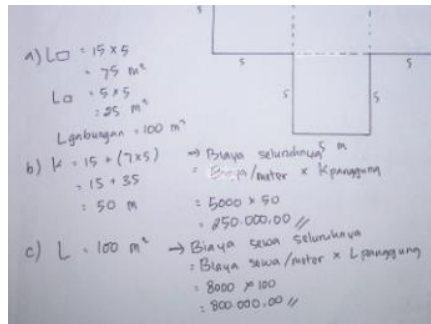 5
5
5
5
5
5 m
a) L▭ = 15 x 5
= 75 m²
L□ = 5 x 5
= 25 m²
Lgabungan = 100 m²
b) K = 15 + (7x5)
= 15 + 35
= 50 m
→ Biaya seluruhnya
= Biaya/meter x Kpanggung
= 5000 x 50
= 250.000,00 //
c) L = 100 m²
→ Biaya sewa seluruhnya
= Biaya sewa/meter x Lpanggung
= 8000 x 100
= 800.000,00 //